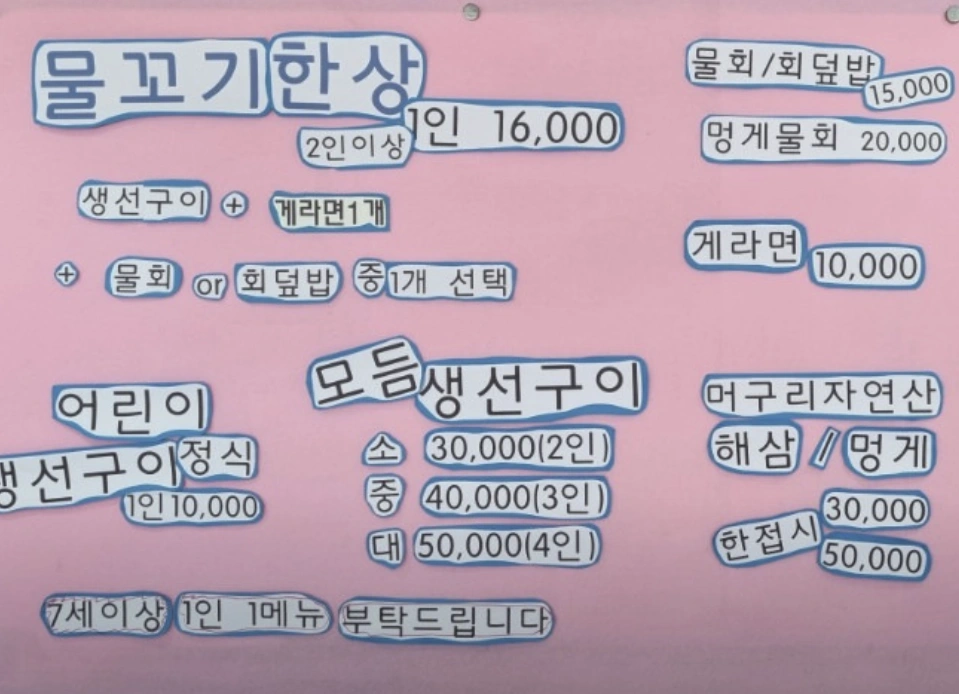 물꼬기한상
2인이상 1인 16,000
생선구이 + 게라면1개
+ 물회 or 회덮밥 중1개 선택
물회/회덮밥 15,000
멍게물회 20,000
게라면 10,000
어린이
생선구이정식
1인10,000
모듬생선구이
소 30,000(2인)
중 40,000(3인)
대 50,000(4인)
머구리자연산
해삼 / 멍게
한접시 30,000
50,000
7세이상 1인 1메뉴 부탁드립니다